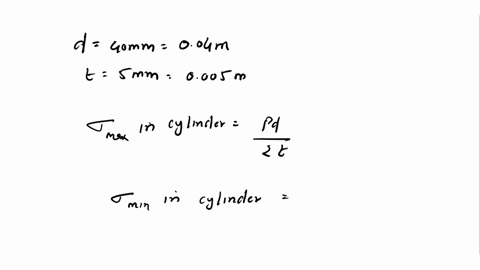 d = 40mm = 0.04m
t = 5mm = 0.005m
σmax in cylinder = Pd / 2t
σmin in cylinder =